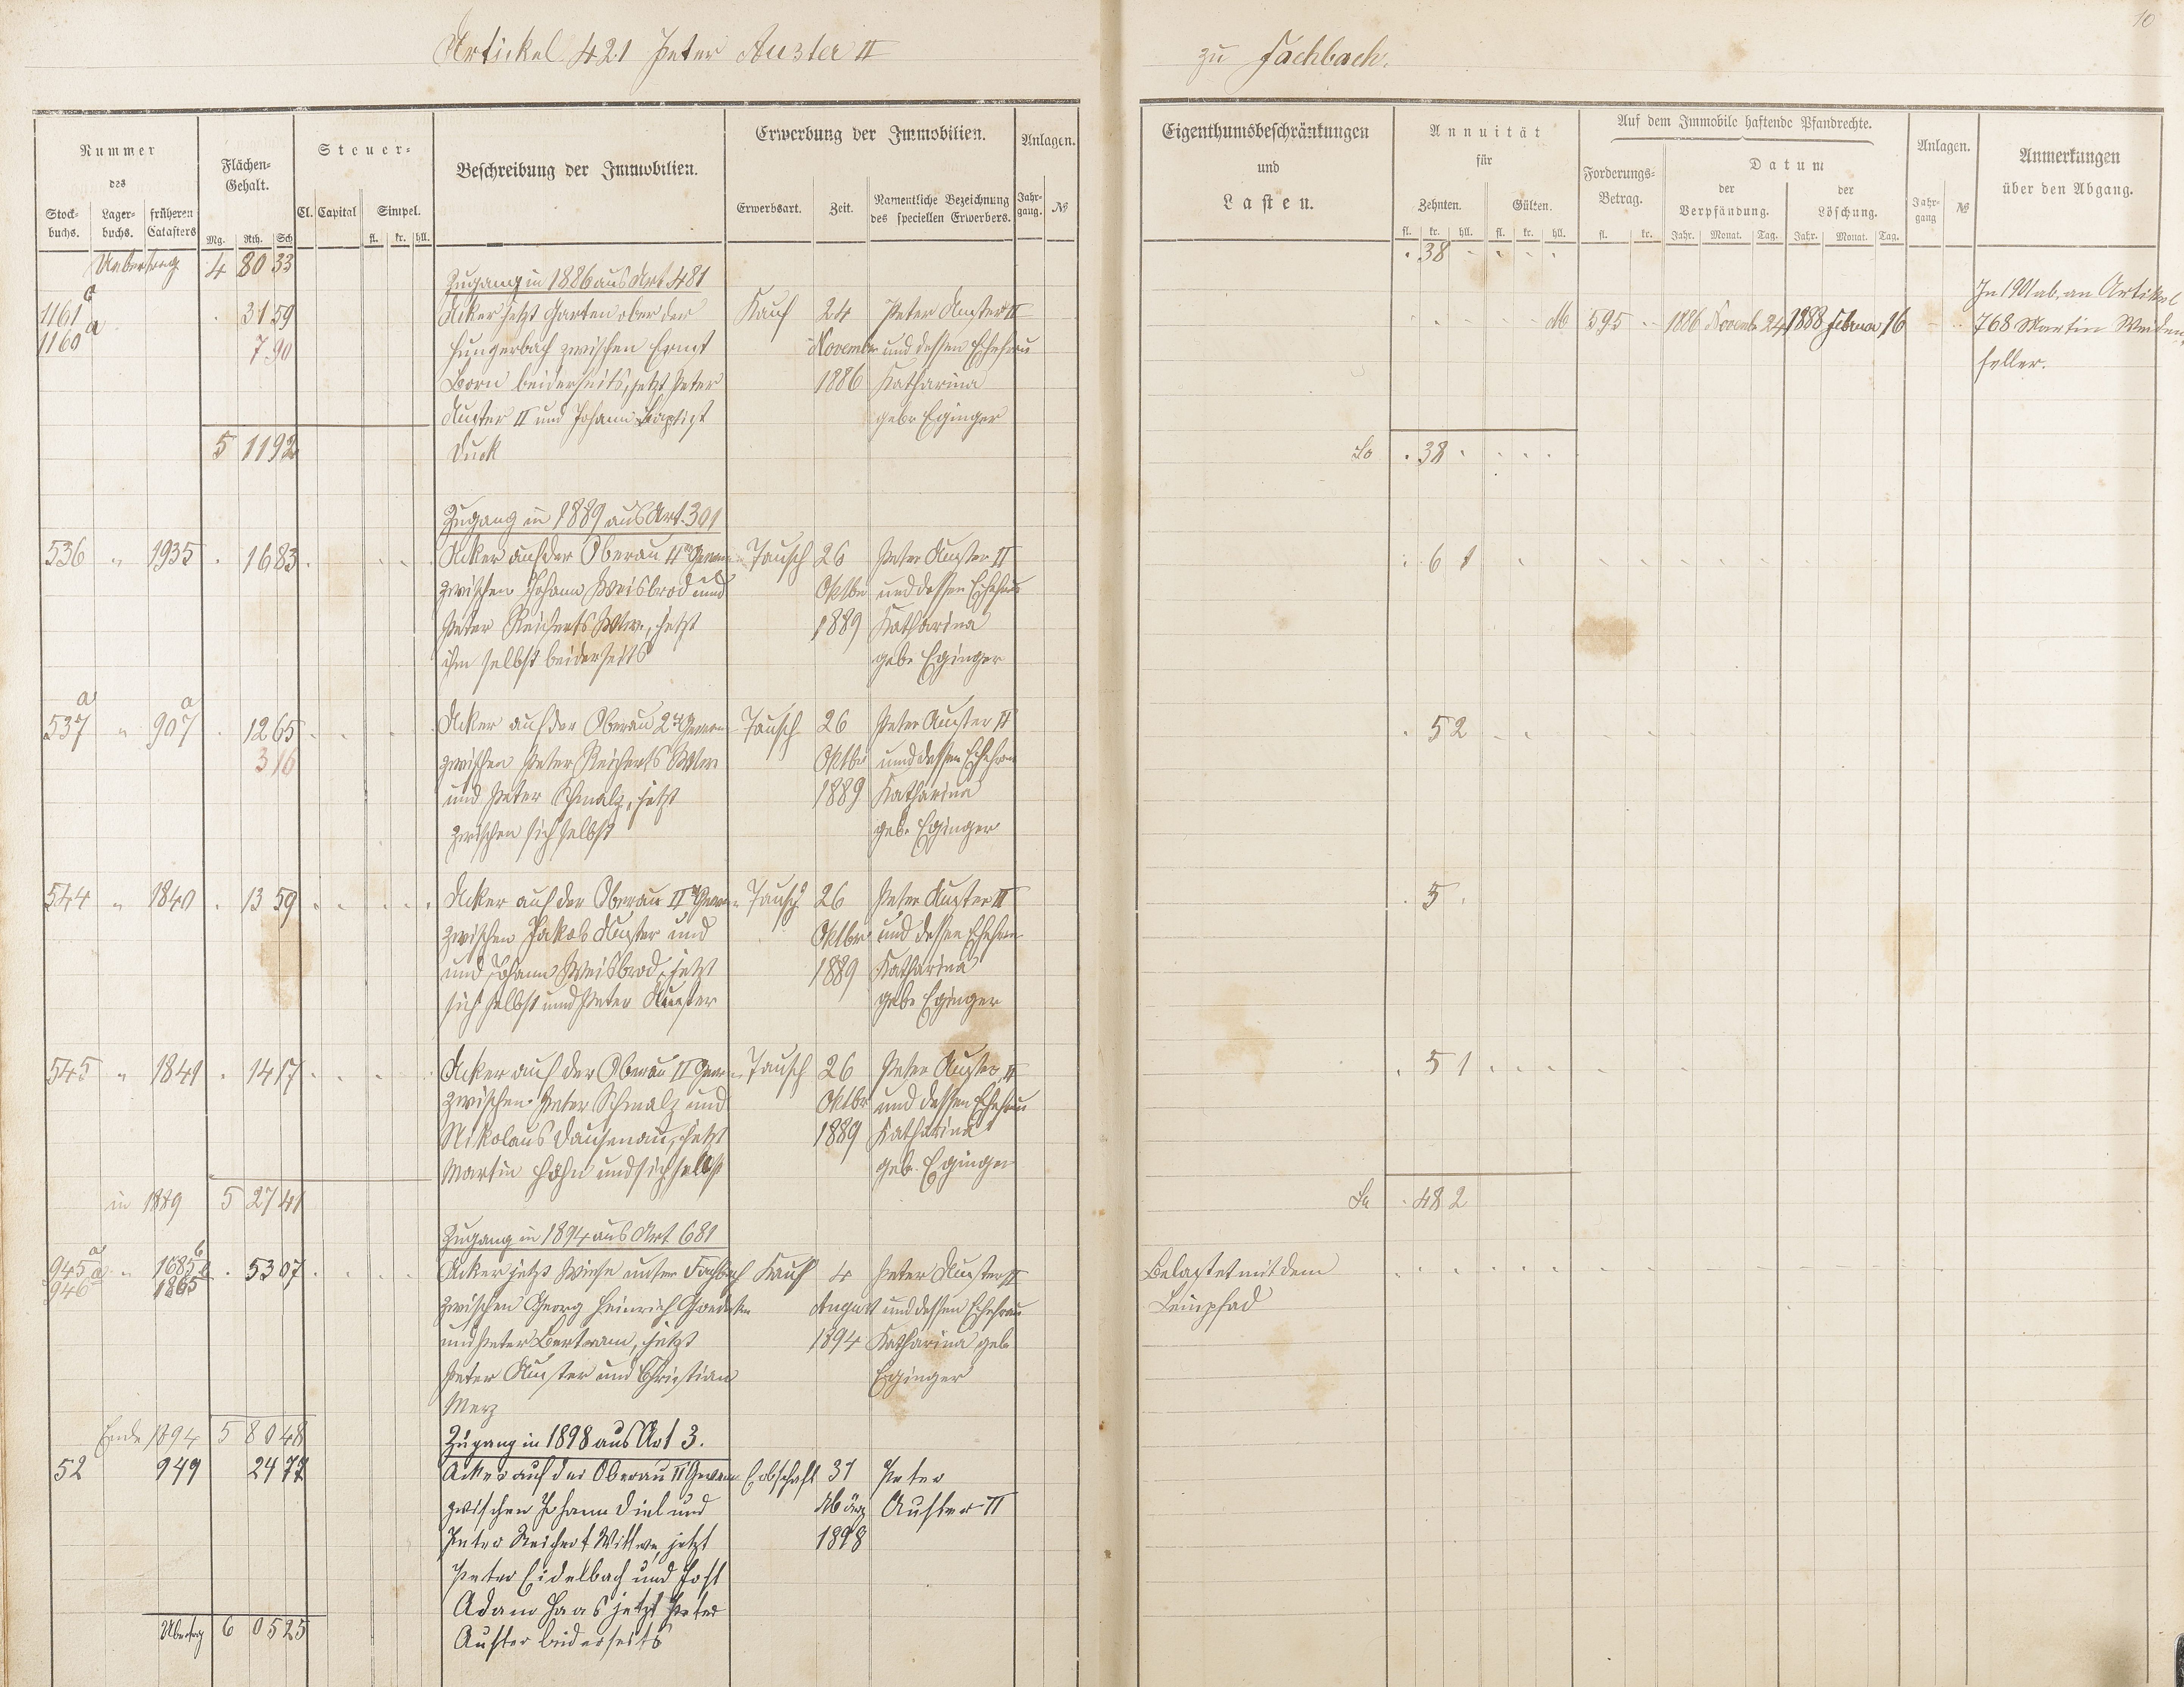 10
Artickel 421 Peter Auster II
zu Fachbach.
Nummer
des
Stock-
buchs.
Lager-
buchs.
früheren
Catasters
Flächen-
Gehalt.
Mg. Rth. Sch
Steuer-
Cl. Capital Simpel.
fl. kr. hll.
Beschreibung der Immobilien.
Erwerbung der Immobilien.
Erwerbsart. Zeit.
Namentliche Bezeichnung
des speciellen Erwerbers.
Anlagen.
Jahr-
gang. №
Uebertrag 4 80 33
Zugang in 1886 aus Art 481
1161 a 31 59 Acker jetzt Garten ober der Kauf 24 Peter Auster II
1160 a 7 90 Hungerbach zwischen Ernst November und dessen Ehefrau
Born beiderseits, jetzt Peter 1886 Katharina
Auster II und Johann Baptist gebr Eginger
5 11 92 Duck
Zugang in 1889 aus Art. 301
536 " 1935 16 83 Acker auf der Oberau Tausch 26 Peter Auster II
zwischen Johann Weisbrod und Oktbr und dessen Ehefrau
Peter Reicherts Wwe, jetzt 1889 Katharina
ihm selbst beiderseits geb. Eginger
537 a " 907 a 12 65 Acker auf der Oberau 2te Gewann Tausch 26 Peter Auster II
3 16 zwischen Peter Reicherts Wwe Oktbr und dessen Ehefrau
und Peter Schmalz, jetzt 1889 Katharina
zwischen sich selbst geb. Eginger
544 " 1840 13 59 Acker auf der Oberau II Gewann Tausch 26 Peter Auster II
zwischen Jakob Auster und Oktbr und dessen Ehefrau
und Johann Weisbrod, jetzt 1889 Katharina
sich selbst und Peter Auster geb. Eginger
545 " 1841 14 17 Acker auf der Oberau II Gew Tausch 26 Peter Auster II
zwischen Peter Schmalz und Oktbr und dessen Ehefrau
Nikolaus Dausenau, jetzt 1889 Katharina
Martin Hahn und sich selbst geb. Eginger
in 1889 5 27 41
Zugang in 1894 aus Art 681
945 a " 1685 b 53 07 Acker jetzt Wiese unter Fachbach Kauf 4 Peter Auster II
946 1865 zwischen Georg Heinrich August und dessen Ehefrau
und Peter Bertram, jetzt 1894 Katharina geb
Peter Auster und Christian Eginger
Merz
Ende 1894 5 80 48 Zugang in 1898 aus Art 3.
52 949 24 77 Acker auf der Oberau II Gewann Erbschaft 31 Peter
zwischen Johann Diel und März Auster II
Peter Reichert Wittwe, jetzt 1898
Peter Eidelbach und Jost
Adam Haas jetzt Peter
Uebertrag 6 05 25 Auster beiderseits
Eigenthumsbeschränkungen
und
Lasten.
Annuität
für
Zehnten. Gülten.
fl. kr. hll. fl. kr. hll.
Auf dem Immobile haftende Pfandrechte.
Forderungs-
Betrag.
fl. kr.
Datum
der
Verpfändung.
Jahr. Monat. Tag.
der
Löschung.
Jahr. Monat. Tag.
Anlagen.
Jahr-
gang №
Anmerkungen
über den Abgang.
38
M 595 1886 Novemb. 24 1888 Februar 16
In 1901 ab, an Artikel
768 Martin Weiden-
feller.
Sa 38
6 1
52
5
5 1
Sa 48 2
Belastet mit dem
Leinpfad